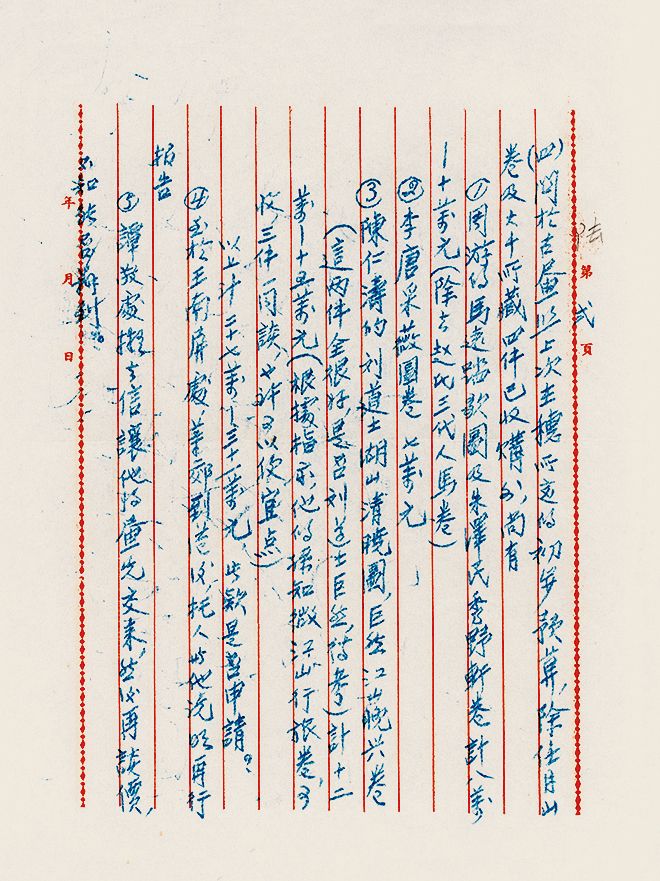 第弍頁
(四)関於古画照上次在穗所定的初步預算,除任月山
卷及大千所藏四件已收購外,尚有
①周游的馬遠踏歌圖及朱澤民秀野軒卷計八萬
—十萬元(除去趙氏三代人馬卷)
②李唐采薇圖卷 七萬元
③陳仁濤的刘道士湖山清曉圖,巨然江山晚兴卷
(這兩件全很好,是否刘道士巨然,待考)計十二
萬—十五萬元(根據指示,他的孫知微江山行旅卷,可
收,三件一同談,也許可以便宜点)
以上計二十七萬—三十二萬元 此欵是否申請?
④至於王南屏處,華郊到港後,托人与他說明再行
报告
⑤譚敬處擬去信讓他将画先交来,然後再談價,
不知能否辦到。
年 月 日